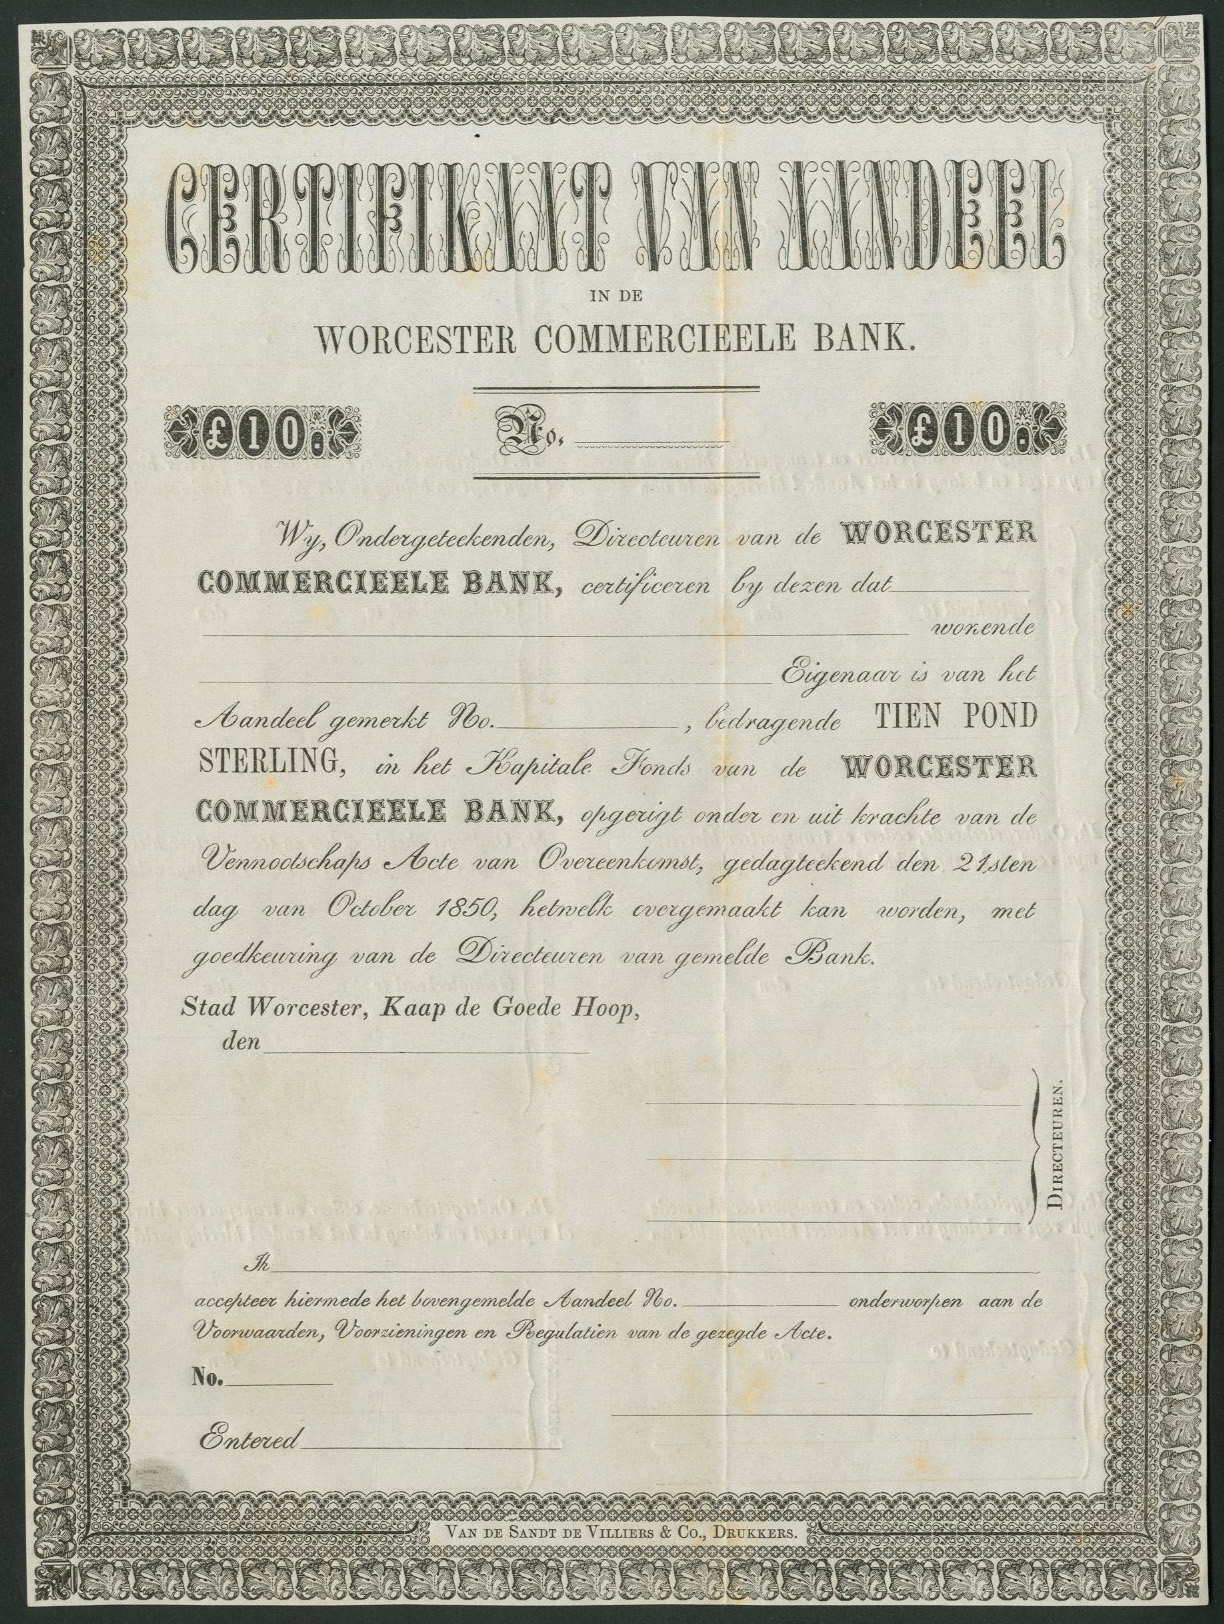 CERTIFIKAAT VAN AANDEEL
IN DE
WORCESTER COMMERCIEELE BANK.
£10. No. £10.
Wy, Ondergeteekenden, Directeuren van de WORCESTER
COMMERCIEELE BANK, certificeren by dezen dat
wonende
Eigenaar is van het
Aandeel gemerkt No. , bedragende TIEN POND
STERLING, in het Kapitale Fonds van de WORCESTER
COMMERCIEELE BANK, opgerigt onder en uit krachte van de
Vennootschaps Acte van Overeenkomst, gedagteekend den 21sten
dag van October 1850, hetwelk overgemaakt kan worden, met
goedkeuring van de Directeuren van gemelde Bank.
Stad Worcester, Kaap de Goede Hoop,
den
DIRECTEUREN.
Ik
accepteer hiermede het bovengemelde Aandeel No. onderworpen aan de
Voorwaarden, Voorzieningen en Regulatien van de gezegde Acte.
No.
Entered
VAN DE SANDT DE VILLIERS & CO., DRUKKERS.